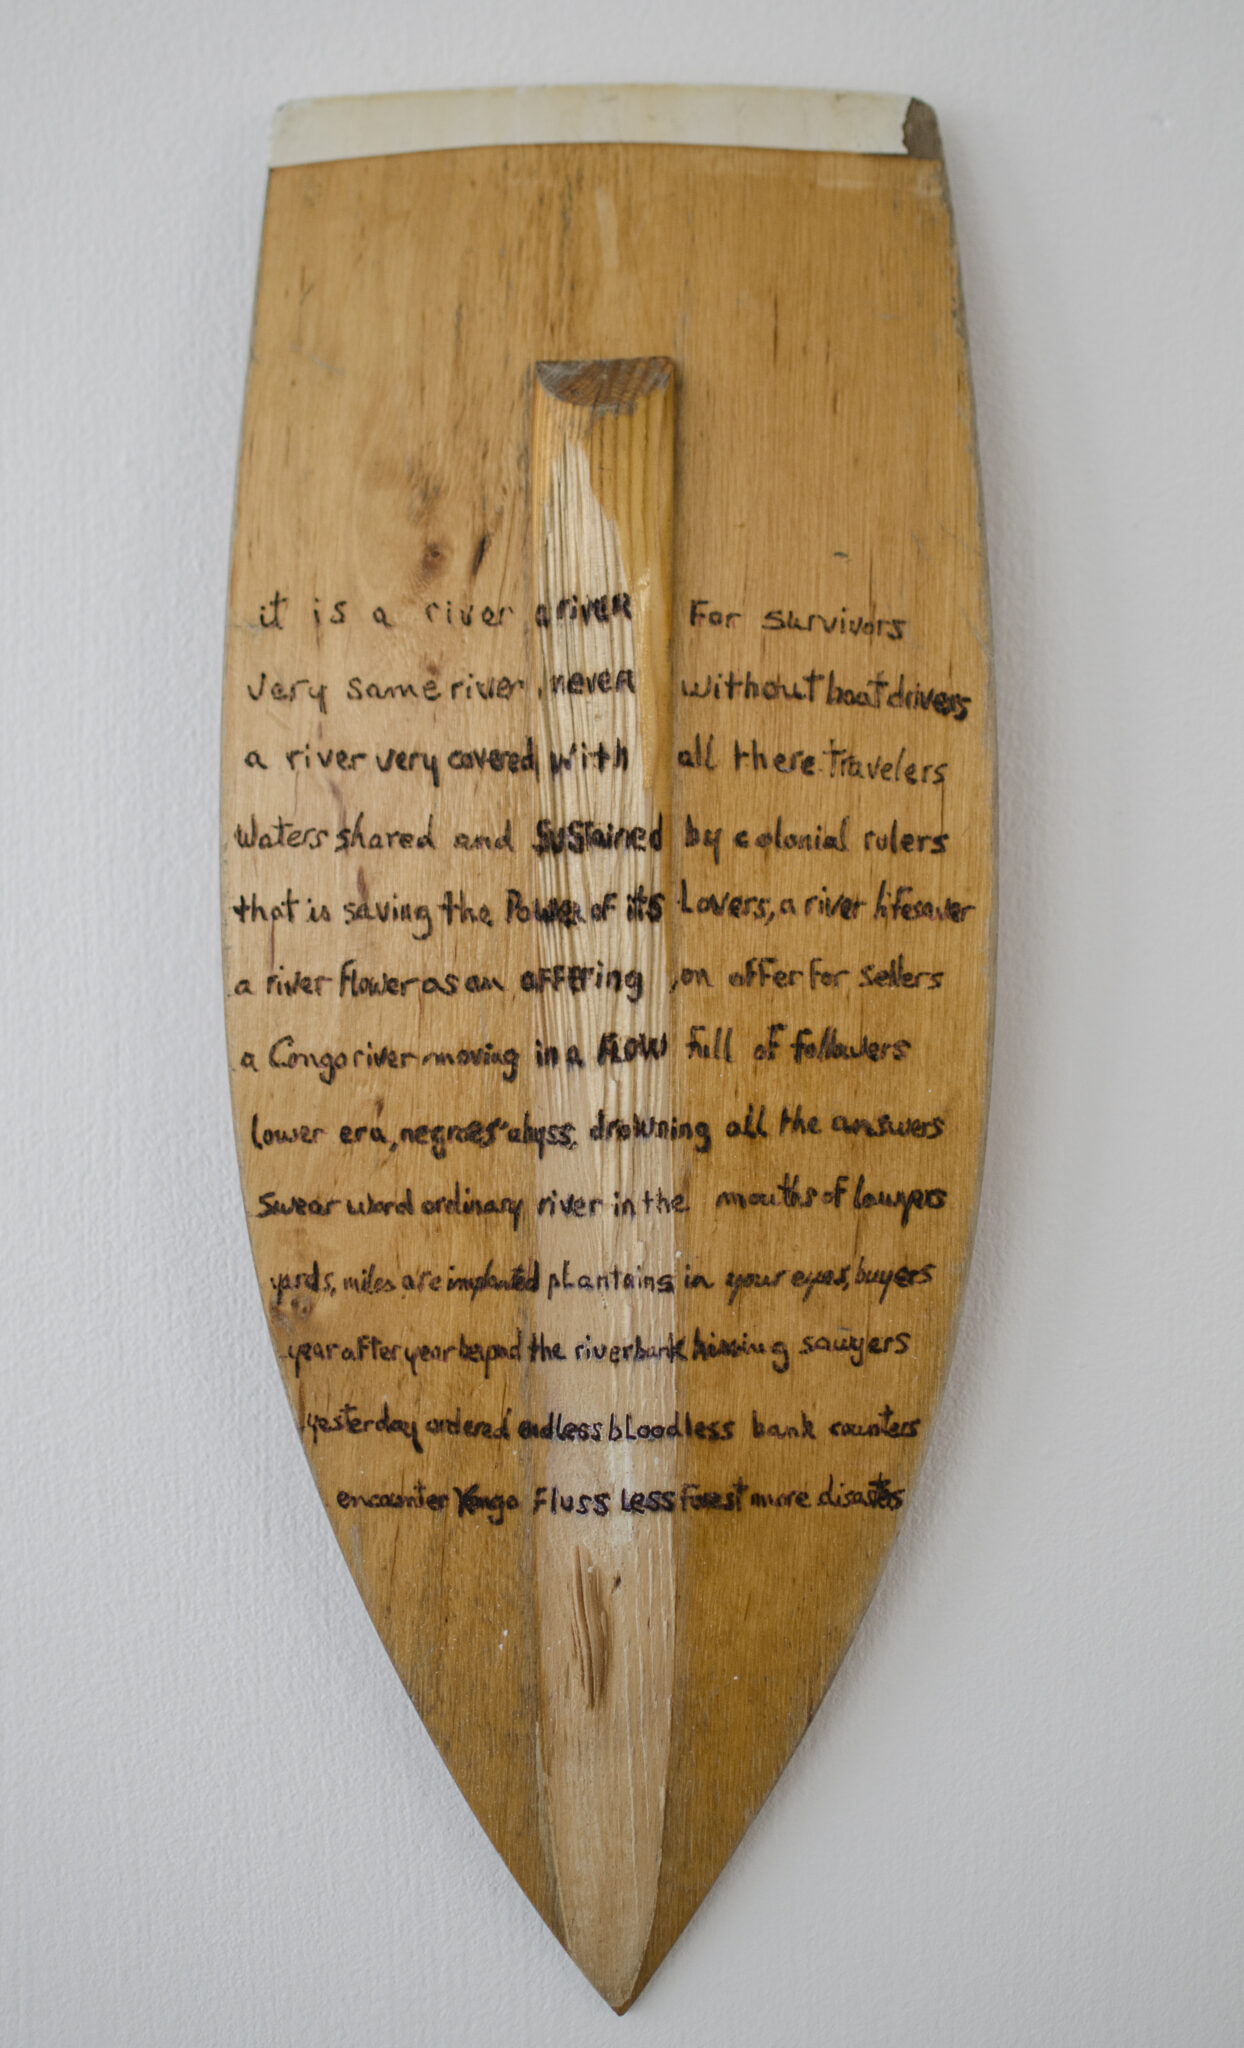 it is a river a river For survivors
very same river, never without boat drivers
a river very covered with all there travelers
Waters shared and sustained by colonial rulers
that is saving the Power of its Lovers, a river lifesaver
a river flower as an offering, on offer for sellers
a Congo river moving in a flow full of followers
lower era, negroes' abyss, drowning all the answers
swear word ordinary river in the mouths of lawyers
yards, miles are implanted plantains in your eyes, buyers
year after year beyond the riverbank sawyers
yesterday ordered endless bloodless bank counters
encounter Kongo Fluss less forest more disasters